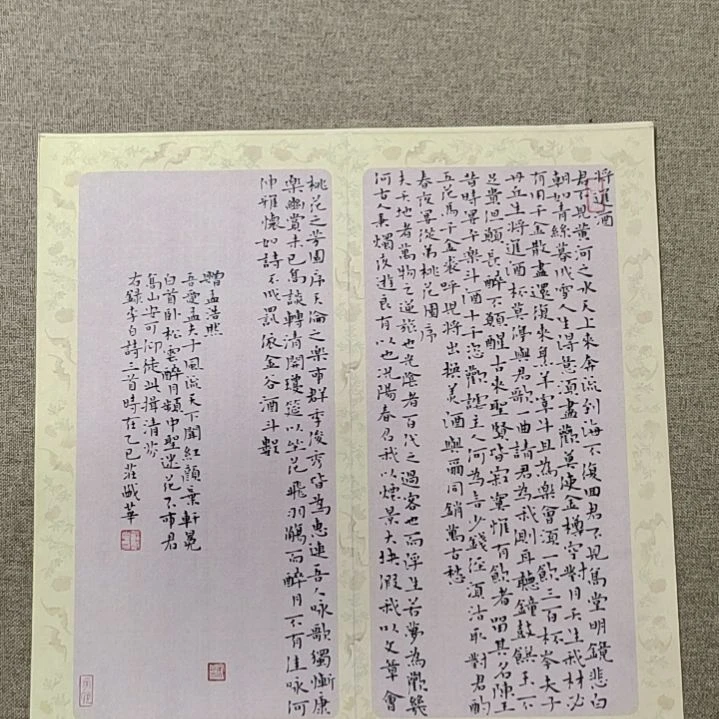 将進酒
君不見黄河之水天上來奔流到海不復回君不見髙堂明鏡悲白
朝如青絲暮成雪人生得意須盡歡莫使金樽空對月天生我材必
有用千金散盡還復來烹羊宰牛且為樂會須一飲三百杯岑夫子
丹丘生將進酒杯莫停與君歌一曲請君為我側耳聽鐘鼓饌玉不
足貴但願長醉不願醒古來聖賢皆寂寞惟有飲者留其名陳王
昔時宴平樂斗酒十千恣歡謔主人何為言少錢徑須沽取對君酌
五花馬千金裘呼兒將出換美酒與爾同銷萬古愁
春夜宴從弟桃花園序
夫天地者萬物之逆旅也光陰者百代之過客也而浮生若夢為歡幾
何古人秉燭夜遊良有以也況陽春召我以煙景大塊假我以文章會
桃花之芳園序天倫之樂事群季俊秀皆為惠連吾人詠歌獨慚康
樂幽賞未已髙談轉清開瓊筵以坐花飛羽觴而醉月不有佳詠何
伸雅懷如詩不成罰依金谷酒斗數
贈孟浩然
吾愛孟夫子風流天下聞紅顏棄軒冕
白首卧松雲醉月頻中聖迷花不事君
髙山安可仰徒此揖清芬
右録李白詩三首時在乙巳莊華